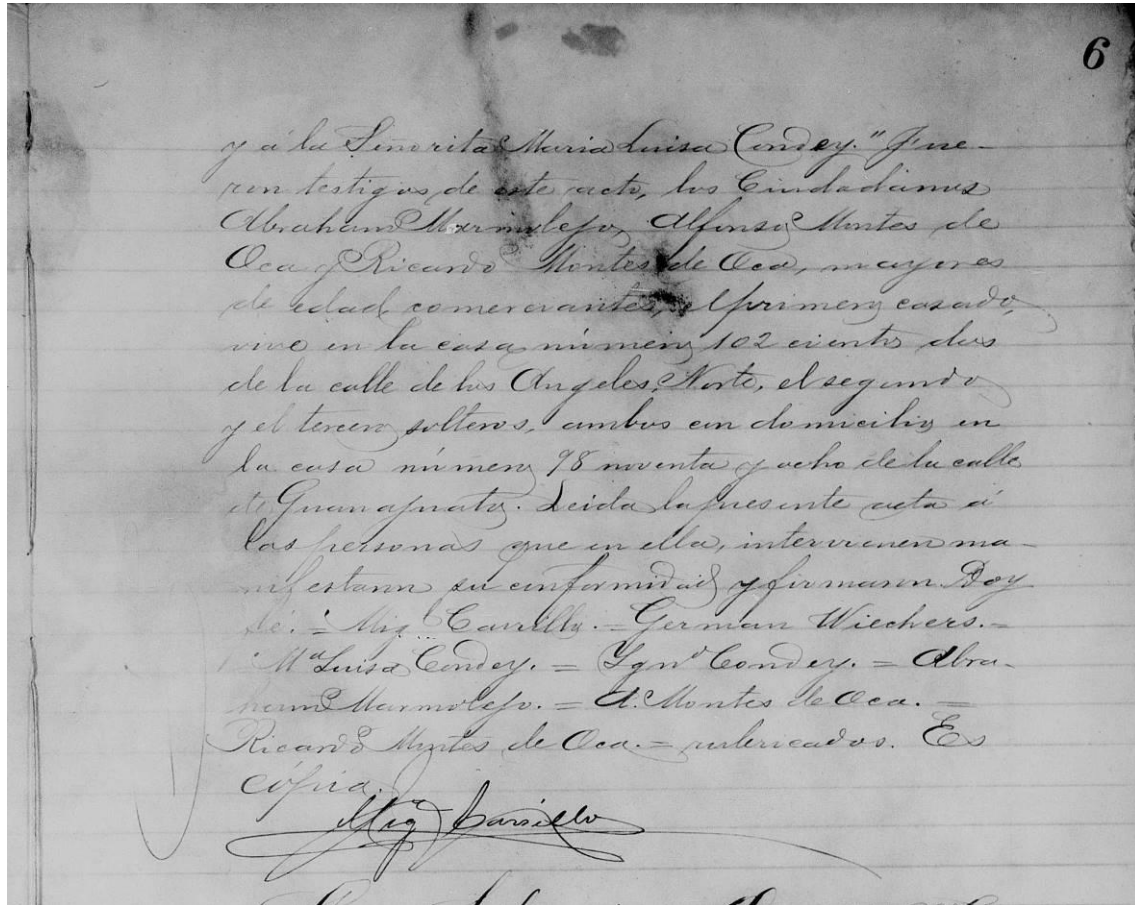 6
y á la Señorita Maria Luisa Condey." Fue-
ron testigos de este acto, los Ciudadanos
Abraham Marmolejo, Alfonso Montes de
Oca y Ricardo Montes de Oca, mayores
de edad, comerciantes, el primero casado,
vive en la casa número 102 ciento dos
de la calle de los Angeles Norte, el segundo
y el tercero solteros, ambos con domicilio en
la casa número 98 noventa y ocho de la calle
de Guanajuato. Leida la presente acta á
las personas que en ella, intervienen ma-
nifestaron su conformidad y firmaron. Doy
fé. = Mig. Carrillo. = German Wiechers. =
Mª Luisa Condey. = Ygnº Condey. = Abra-
ham Marmolejo. = A. Montes de Oca. =
Ricardo Montes de Oca. = rubricados. Es
cópia.
Mig Carrillo